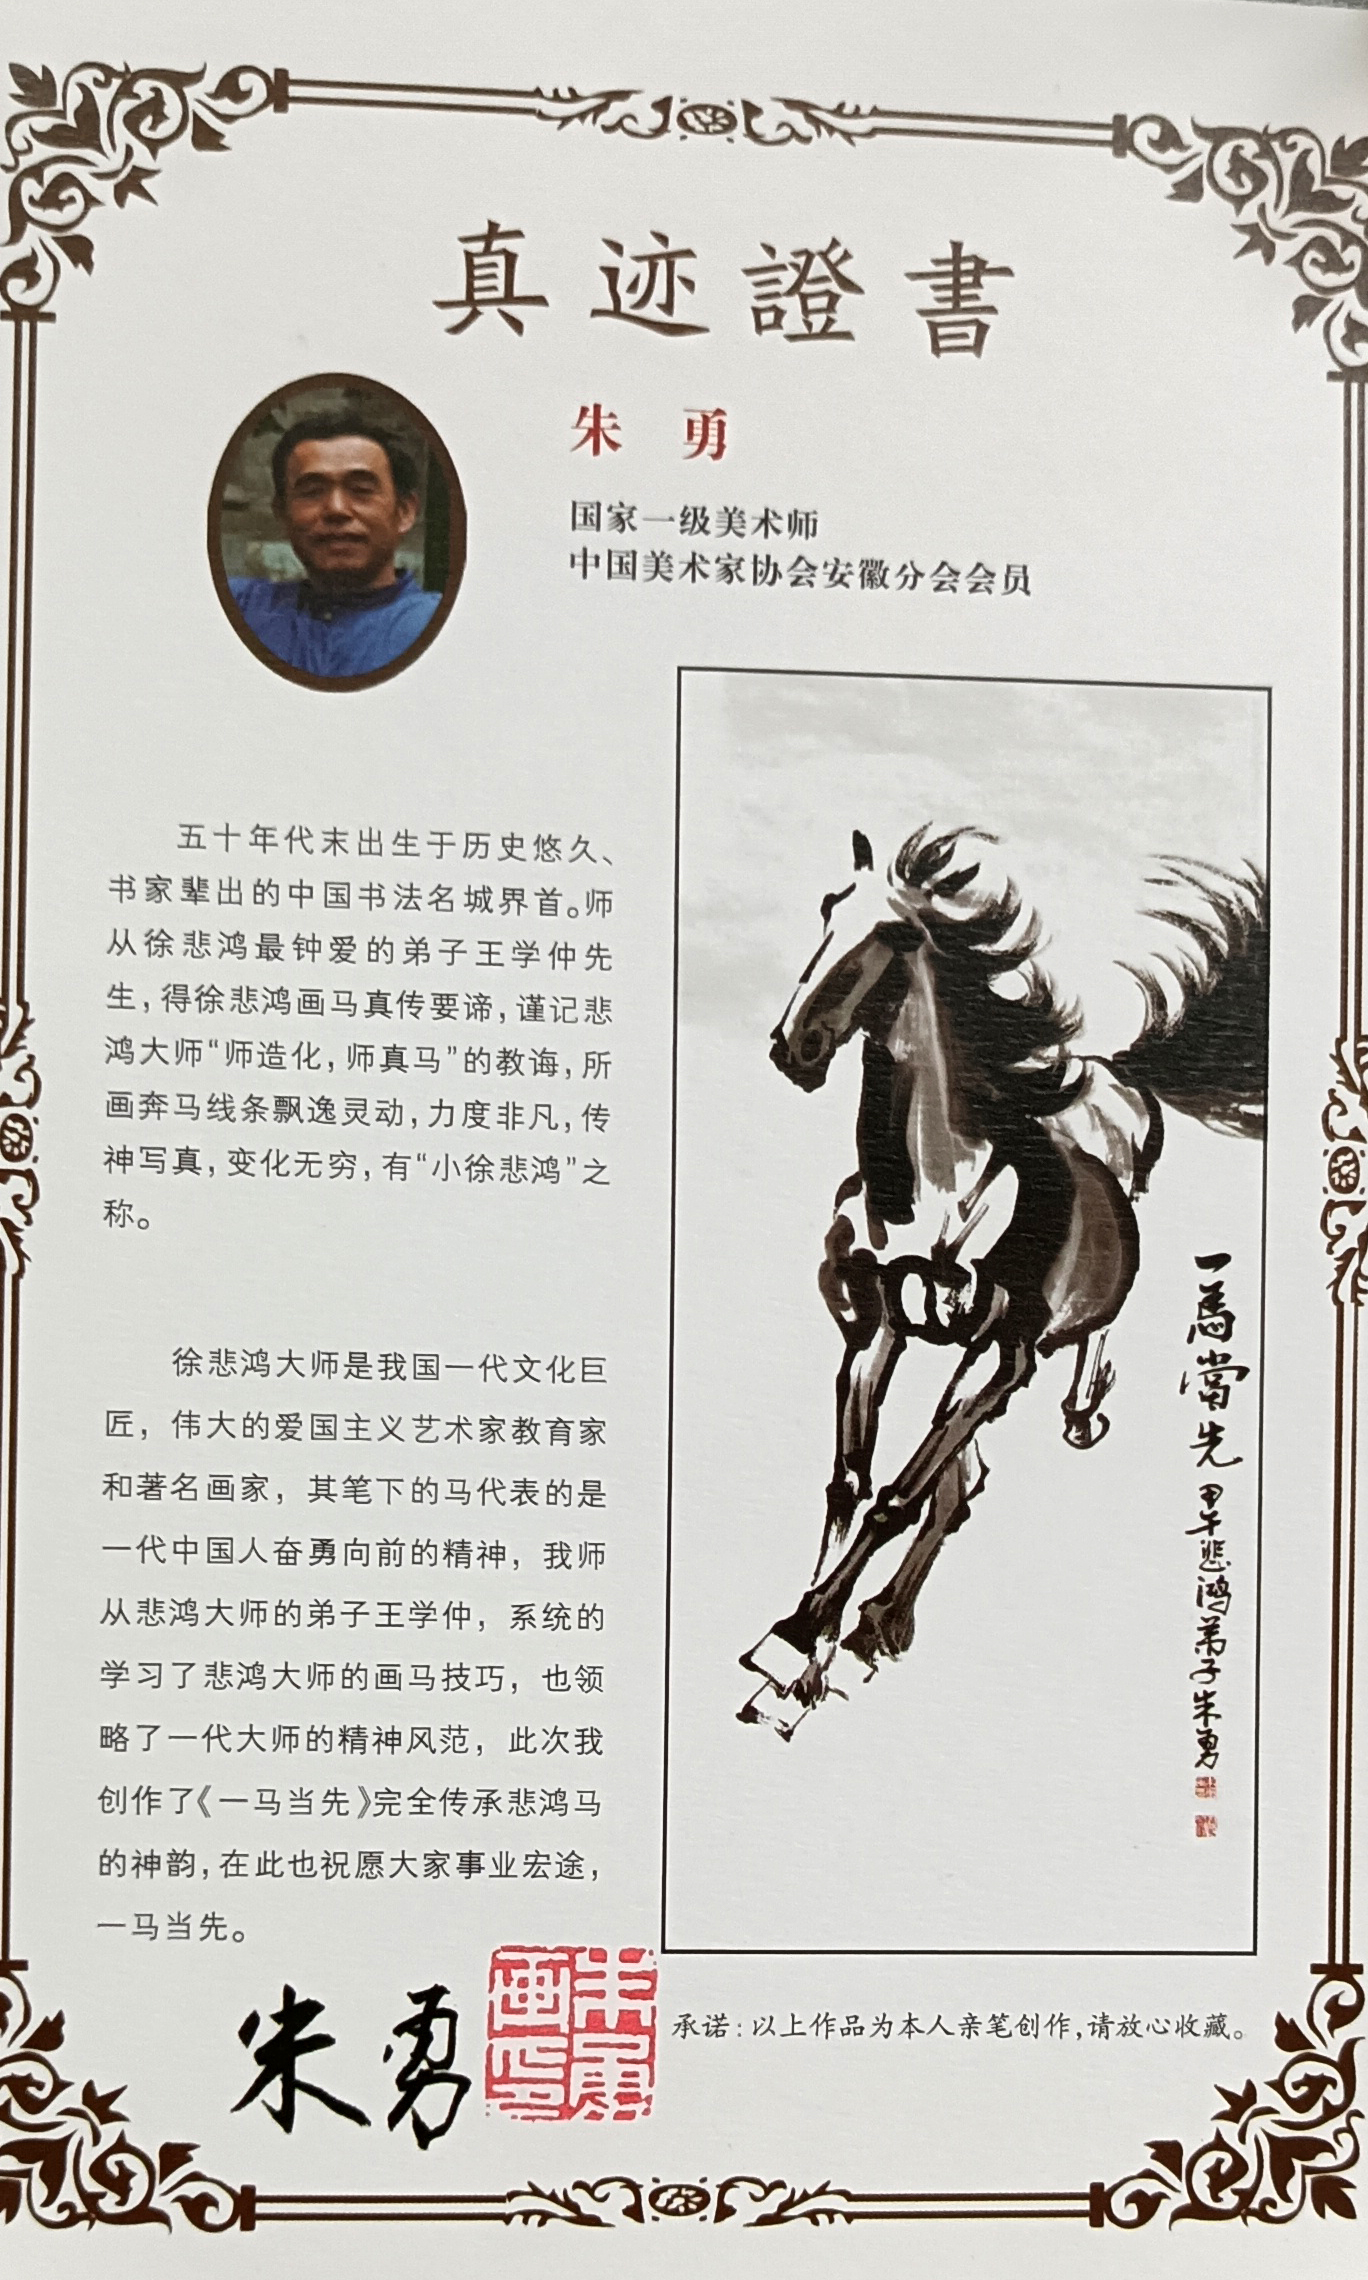 真迹證書
朱勇
国家一级美术师
中国美术家协会安徽分会会员
五十年代末出生于历史悠久、
书家辈出的中国书法名城界首。师
从徐悲鸿最钟爱的弟子王学仲先
生，得徐悲鸿画马真传要谛，谨记悲
鸿大师“师造化，师真马”的教诲，所
画奔马线条飘逸灵动，力度非凡，传
神写真，变化无穷，有“小徐悲鸿”之
称。
徐悲鸿大师是我国一代文化巨
匠，伟大的爱国主义艺术家教育家
和著名画家，其笔下的马代表的是
一代中国人奋勇向前的精神，我师
从悲鸿大师的弟子王学仲，系统的
学习了悲鸿大师的画马技巧，也领
略了一代大师的精神风范，此次我
创作了《一马当先》完全传承悲鸿马
的神韵，在此也祝愿大家事业宏途，
一马当先。
一馬當先 甲午悲鸿弟子朱勇
朱勇
朱勇画印
承诺：以上作品为本人亲笔创作，请放心收藏。